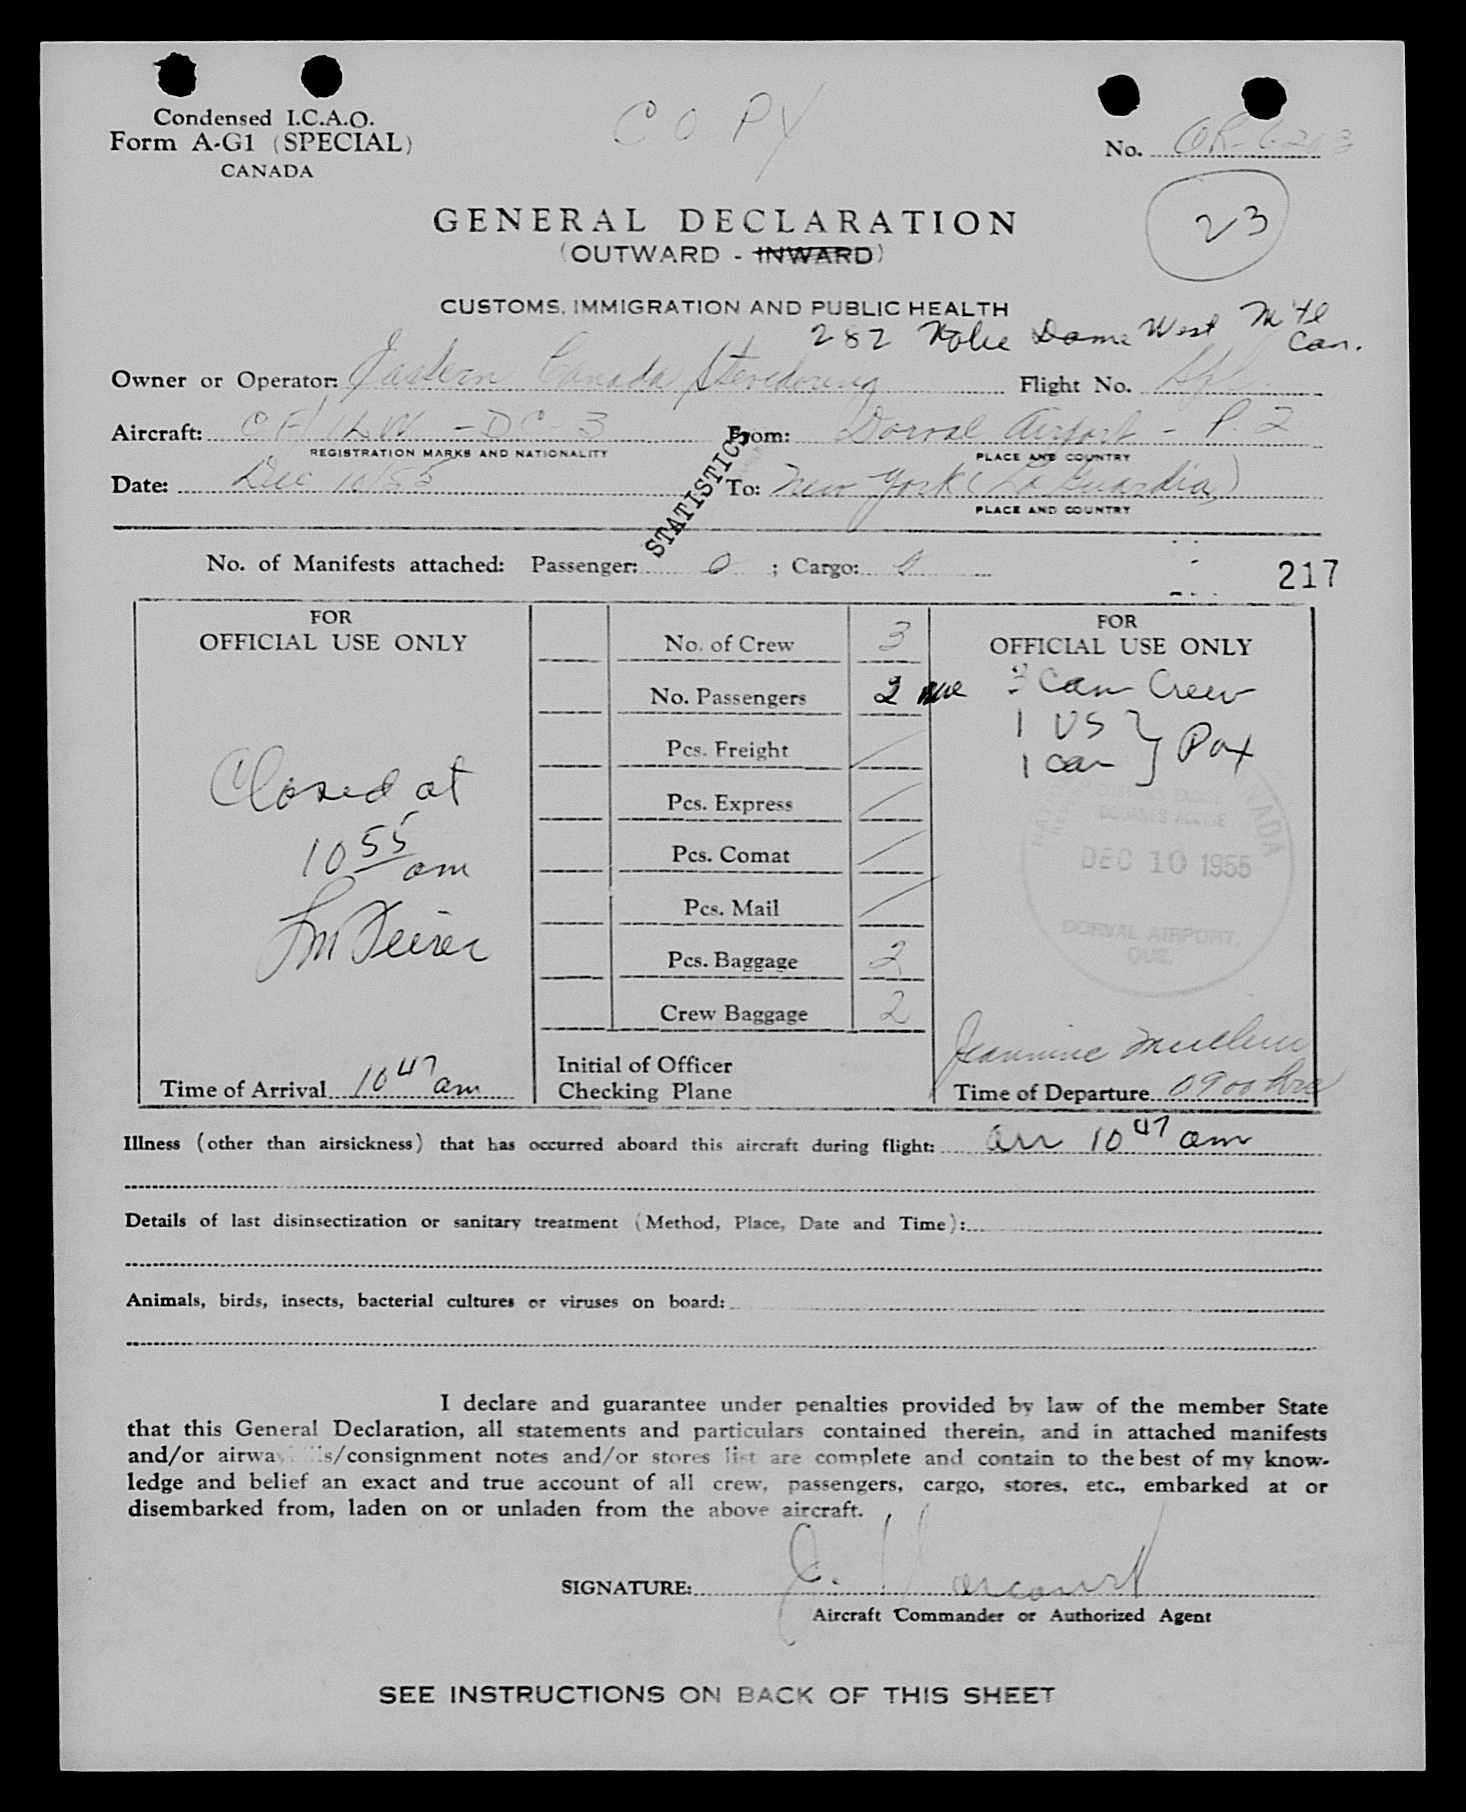 Condensed I.C.A.O.
Form A-G1 (SPECIAL)
CANADA
COPY
No. OR-6203
23
GENERAL DECLARATION
(OUTWARD - INWARD)
CUSTOMS, IMMIGRATION AND PUBLIC HEALTH
282 Notre Dame West M'tl
Can.
Owner or Operator: Eastern Canada Stevedoring Flight No.
Aircraft: CF-ILW - DC-3 From: Dorval Airport - P.2
REGISTRATION MARKS AND NATIONALITY PLACE AND COUNTRY
Date: Dec 10/55 To: New York (La Guardia)
PLACE AND COUNTRY
STATISTICS
No. of Manifests attached: Passenger: 0 ; Cargo: 0
217
FOR
OFFICIAL USE ONLY
Closed at
10 55 am
Time of Arrival 10 47 am
No. of Crew 3
No. Passengers 2
Pcs. Freight /
Pcs. Express /
Pcs. Comat /
Pcs. Mail /
Pcs. Baggage 2
Crew Baggage 2
Initial of Officer
Checking Plane
FOR
OFFICIAL USE ONLY
3 Can Crew
1 US } Pax
1 Can
CANADA
DEC 10 1955
DORVAL AIRPORT,
QUE.
Jeannine
Time of Departure 0900 hrs
Illness (other than airsickness) that has occurred aboard this aircraft during flight: arr 10 47 am
Details of last disinsectization or sanitary treatment (Method, Place, Date and Time):
Animals, birds, insects, bacterial cultures or viruses on board:
I declare and guarantee under penalties provided by law of the member State
that this General Declaration, all statements and particulars contained therein, and in attached manifests
and/or airway    ls/consignment notes and/or stores list are complete and contain to the best of my know-
ledge and belief an exact and true account of all crew, passengers, cargo, stores, etc., embarked at or
disembarked from, laden on or unladen from the above aircraft.
SIGNATURE: J. Harcourt
Aircraft Commander or Authorized Agent
SEE INSTRUCTIONS ON BACK OF THIS SHEET